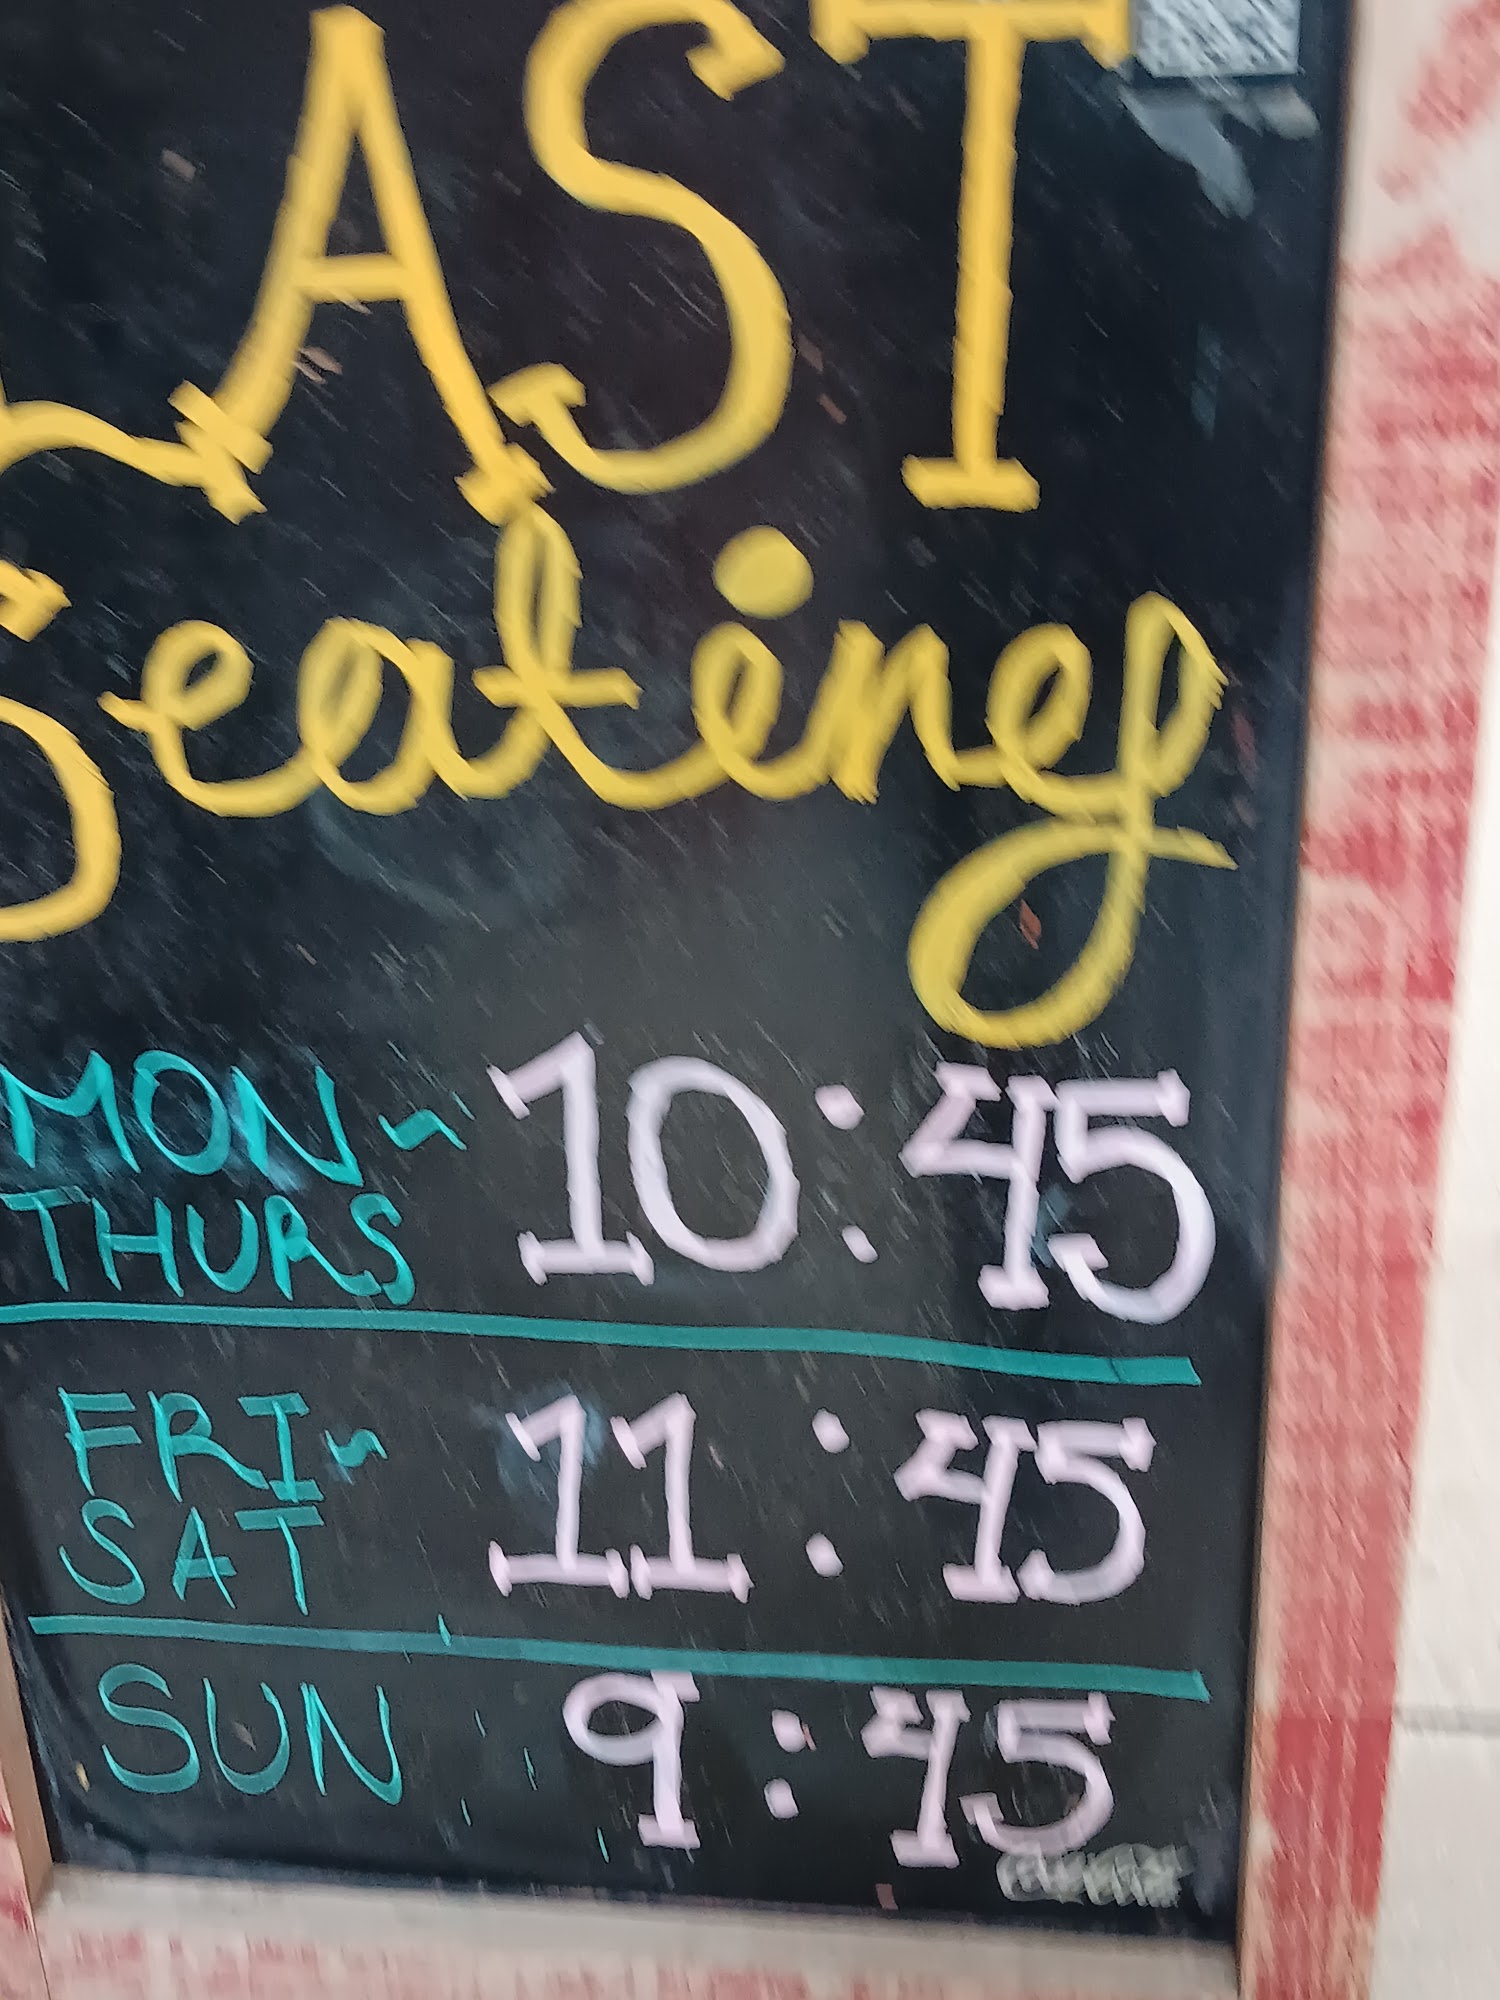 LAST
Seating
MON~ 10:45
THURS
FRI~ 11:45
SAT
SUN 9:45